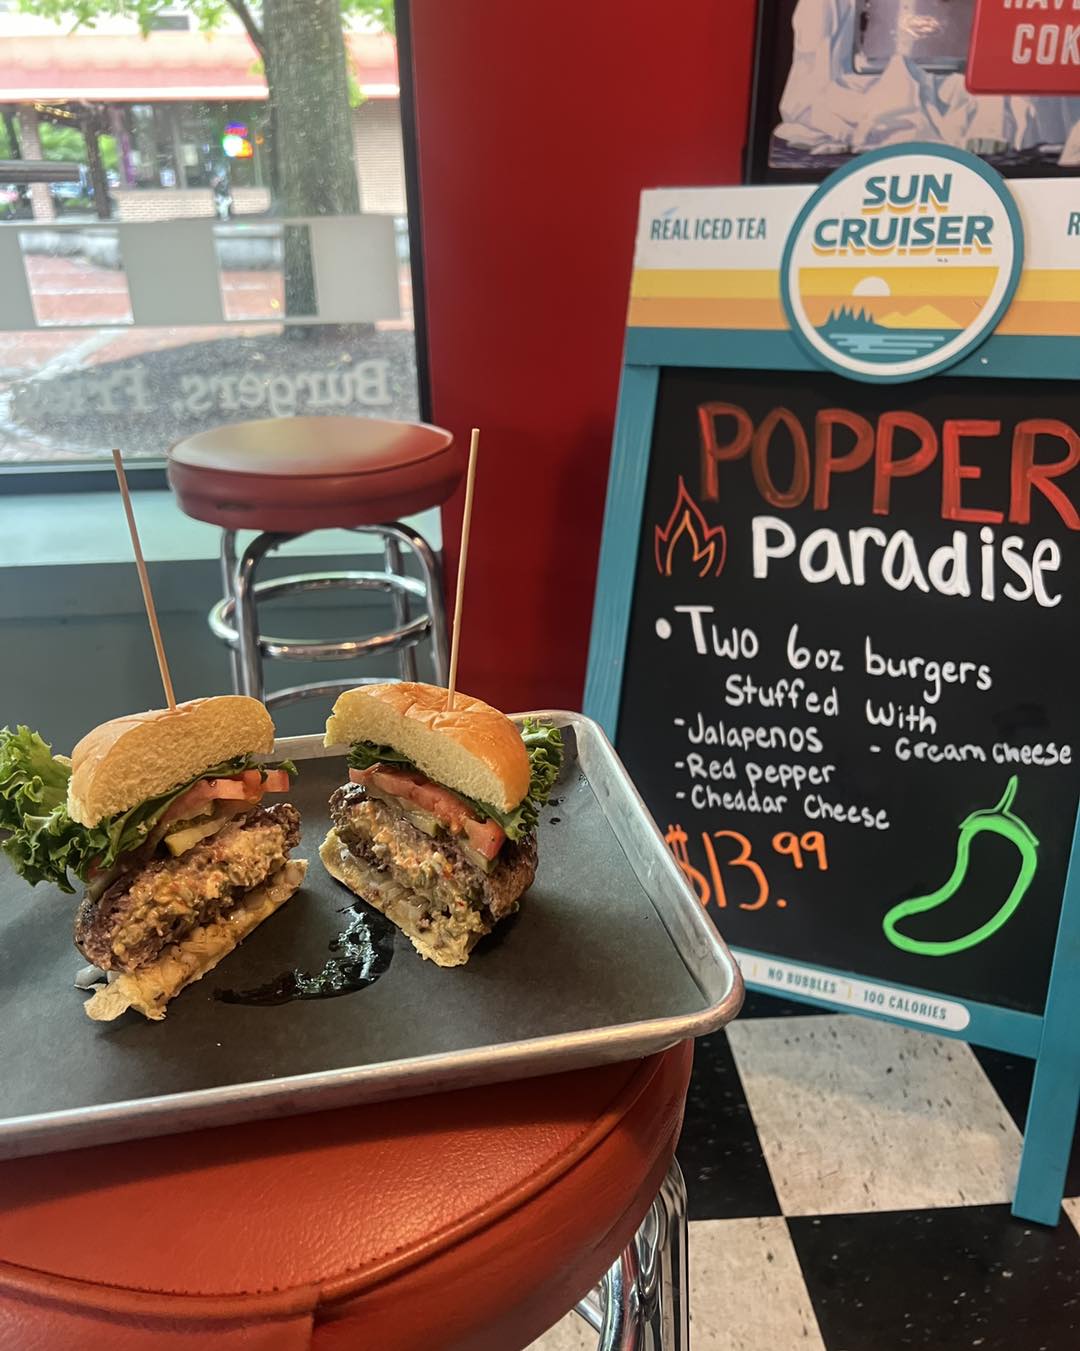 COK
SUN
CRUISER
REAL ICED TEA
POPPER
Paradise
• Two 6oz burgers
Stuffed with
- Jalapenos - Cream cheese
- Red pepper
- Cheddar Cheese
$13.99
NO BUBBLES | 100 CALORIES
Burgers, Fries